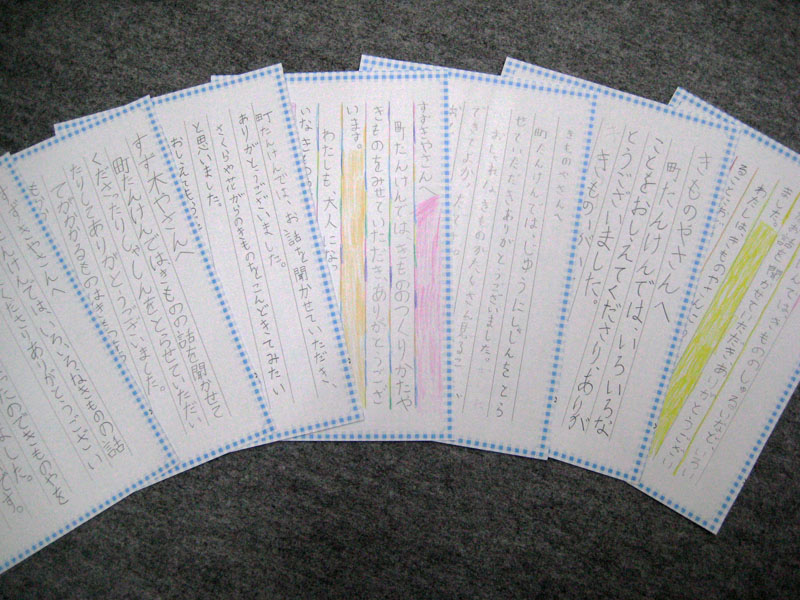 お話を聞かせていただきありがとうござい
ました
わたしはきものやさん
きものやさんへ
町たんけんでは、いろいろな
ことをおしえてくださり、ありが
とうございました。
きものが、
きものやさんへ
町たんけんでは、じゆうにしゃしんをとら
せていただきありがとうございました。
おしゃれなきものがたくさん見
できてよかったです
すずきやさんへ
町たんけんではきもののつくりかたや
きものをみせていただきありがとうござ
います。
わたしも大人になっ
いなきもの
町たんけんでは、お話を聞かせていただき、
ありがとうございました。
さくらや花がらのきものをこんどきてみたい
と思いました。
おしえてもらっ
すず木やさんへ
町たんけんではきものの話を聞かせて
くださったりしゃしんをとらせていただい
たりしてありがとうございました。
すずきやさんへ
たんけんでは、いろいろなきものの話
くださりありがとうござい
きものやを
ました。
です。